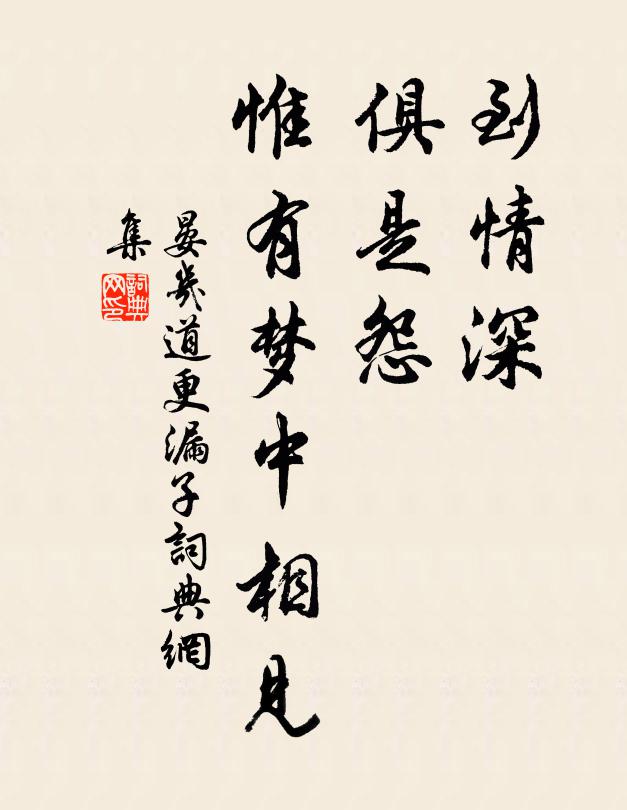 到情深
俱是怨
惟有梦中相見
晏幾道更漏子詞典網
集
詞典网印